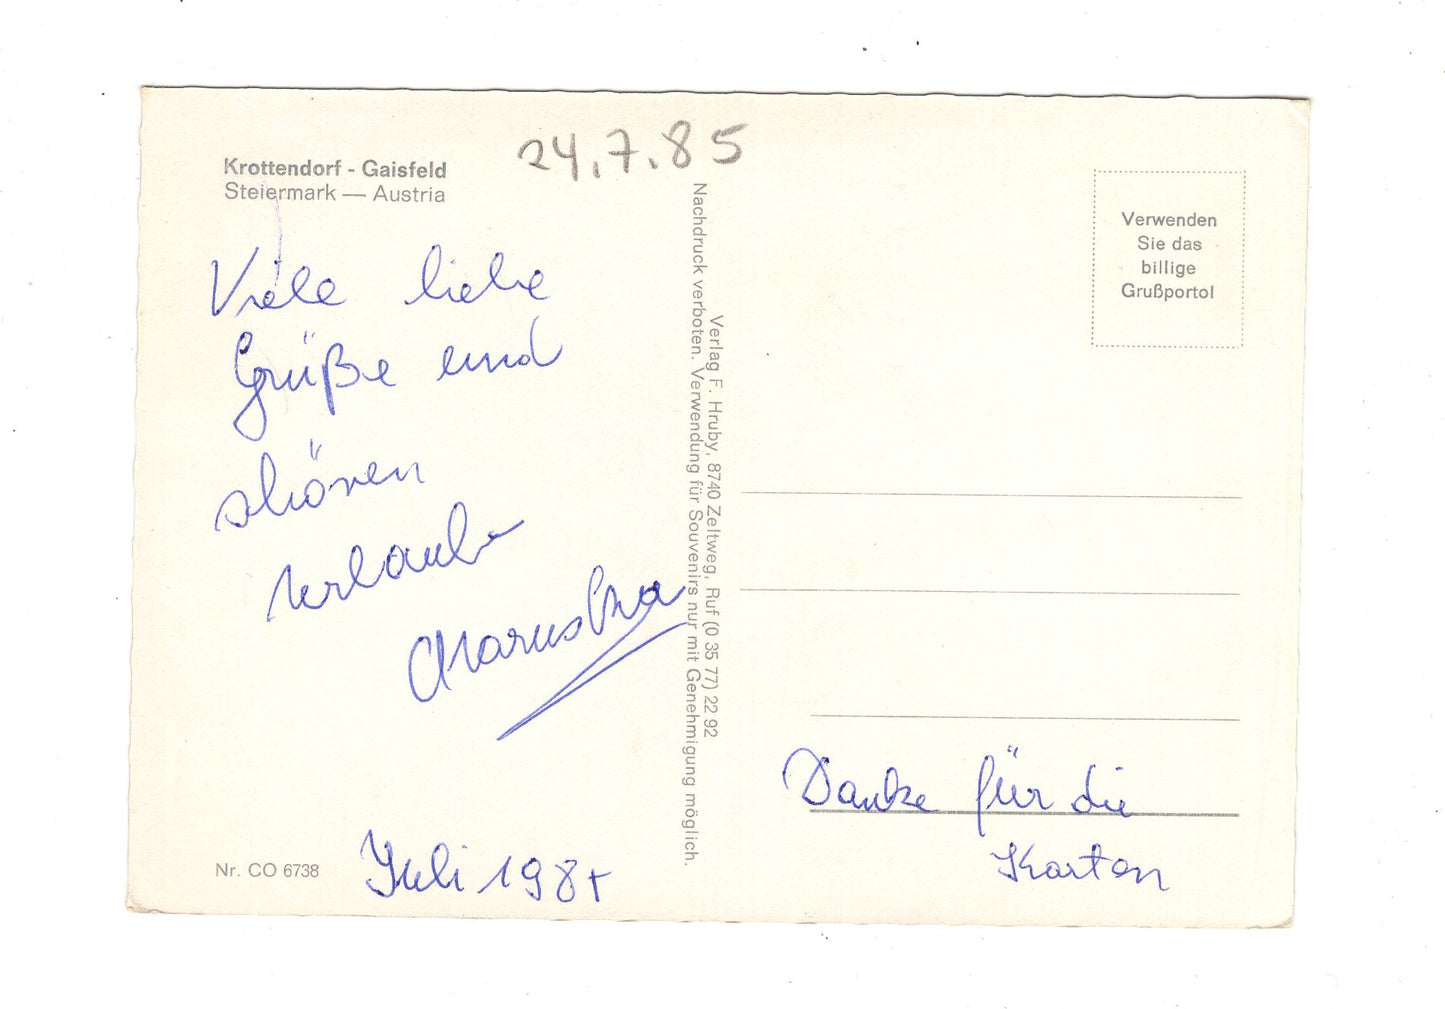 Krottendorf - Gaisfeld
Steiermark — Austria
24.7.85
Viele liebe
Grüße und
schönen
Urlaub
Maruska
Juli 198
Nr. CO 6738
Verlag F. Hruby, 8740 Zeltweg, Ruf (0 35 77) 22 92
Nachdruck verboten. Verwendung für Souvenirs nur mit Genehmigung möglich.
Verwenden
Sie das
billige
Grußporto!
Danke für die
Karten